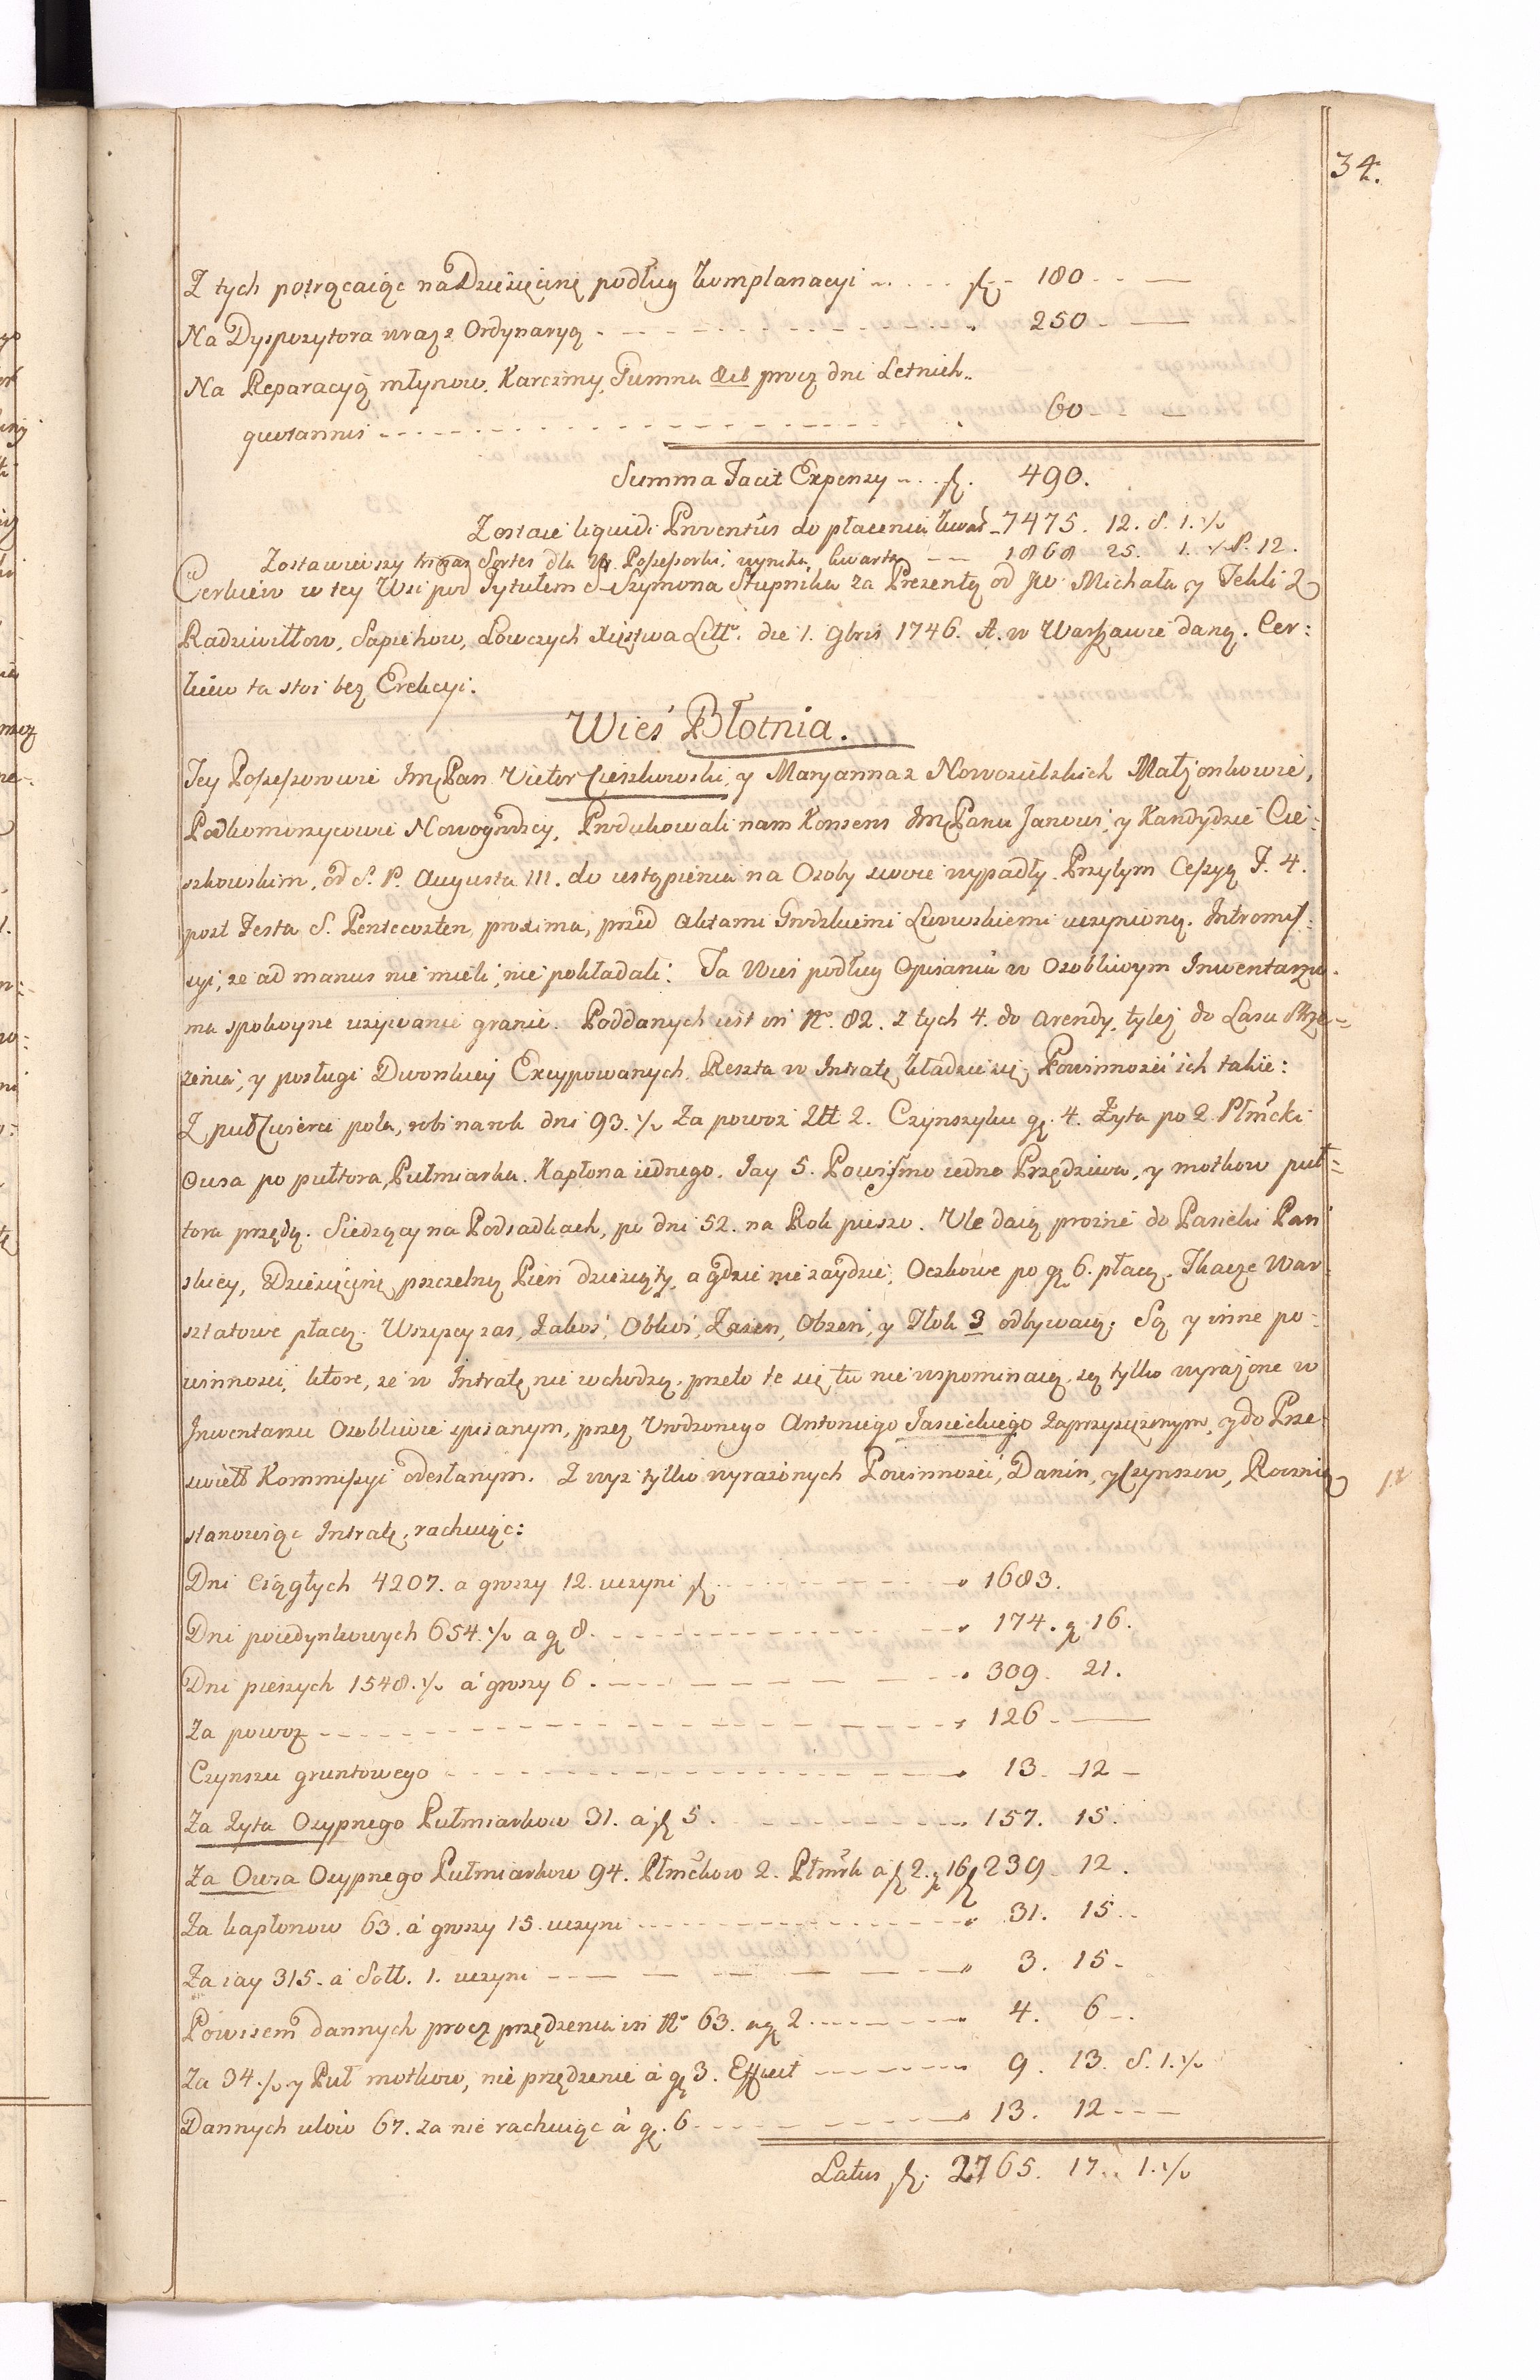 34.
Z tych potrącaiąc na Dziesięcinę podług Komplanacyi . . . . fl. - 180 - - —
Na Dyspozytora wraz z Ordynaryą . - - - - - - 250 - —
Na Reparacyą młynow, Karczmy, Gumna &c procz dni Letnich..
quotannis - - - - - - 60 - - —
Summa Facit Expensy - . . fl. 490.
Zostaie liquidi Proventus do płacenia kwar. - 7475. 12. S. 1. ½
Zostawiwszy trinas Sortes dla W. Possessorki, wynika kwarta — — 1868 25. 1. S. 12.
Cerkiew w tey Wsi pod Tytułem S. Szymona Słupnika za Prezentą od JW Michała y Tekli z
Radziwiłłow, Sapiehow, Łowczych Xięstwa Litt. die 1. 9bris 1746. A. w Warszawie daną. Cer:
kiew ta stoi bez Erekcyi.
Wieś Błotnia.
Tey Possessorowie Im Pan Victor Cieszkowski, y Maryanna z Nowosielskich Małżonkowie,
Podkomorzycowie Nowogrodzcy, Produkowali nam Konsens Im Panu Janowi, y Kandydzie Cie:
szkowskim, od S. P. Augusta III. do ustąpienia na Osoby swoie wypadły. Przytym Cessyą F. 4.
post Festa S. Pentecosten, proxima, przed Aktami Grodzkiemi Lwowskiemi uczynioną. Intromis:
syi, ze ad manus nie mieli, nie pokładali. Ta Wieś podług Opisania w Osobliwym Inwentarzu
ma spokoyne uzywanie granic. Poddanych iest in No. 82. z tych 4. do Arendy, tylez do Lasu Strze=
zenia, y posługi Dworskiey Excypowanych. Reszta w Intratę kładzie się. Powinności ich takie:
Z puł Cwierci pola, robi na rok dni 93. ½ Za powoz Złł 2. Czynszyku gr. 4. Zyta po 2 Płmcki
Owsa po pułtora Pułmiarka. Kapłona iednego. Jay 5. Powissmo iedno Przędziwa, y motkow puł=
tora przędą. Siedzący na Podsadkach, po dni 52. na Rok pieszo. Ule daią prozne do Pasieki Pań
skiey, Dziesięcinę pszczelną Pień dziesiąty, a gdzie nie zaydzie, Oczkowe po gr. 6. płacą. Tkacze War:
sztatowe płacą. Wszyscy zas, Zakoś, Obkoś, Zazen, Obzen, y Tłok 3 odbywaią. Są y inne po:
winności, ktore, ze w Intratę nie wchodzą, przeto te się tu nie wspominaią, są tylko wyrażone w
Inwentarzu Osobliwie spisanym, przez Urodzonego Antoniego Jasieckiego zaprzysiężonym, y do Prze:
świett Kommissyi odesłanym. Z wyz tylko wyrazonych Powinności, Danin, y Czynszow, Roczną
stanowiąc Intratę, rachuiąc:
Dni Ciągłych 4207. a groszy 12. uczyni fl. - - - - 1683.
Dni poiedynkowych 654. ½ a gr 8. - - - - 174. gr 16.
Dni pieszych 1548. ½ á groszy 6 . - - - - 309. 21.
Za powoz - - - - 126 - —
Czynszu gruntowego - - - - 13. 12 -
Za Zyta Osypnego Pułmiarkow 31. a fl 5 . - - - - 157. 15.
Za Owsa Osypnego Pułmiarkow 94. Płmckow 2. Płmrk a fl 2. gr 16 fl 239. 12.
Za kapłonow 63. á groszy 15 uczyni - - - - 31. 15 -
Za iay 315. a Soll. 1. uczyni - - - - 3. 15 -
Powisem dannych procz przędzenia in No 63. a gr 2 - - - - 4. 6 -
Za 34. ½ y Puł motkow, nie przędzenie á gr 3. Efficit - - - - 9. 13. S. 1. ½
Dannych ulow 67. za nie rachuiąc á gr. 6 - - - - 13. 12 - -
Latus fl. 2765. 17. 1. ½